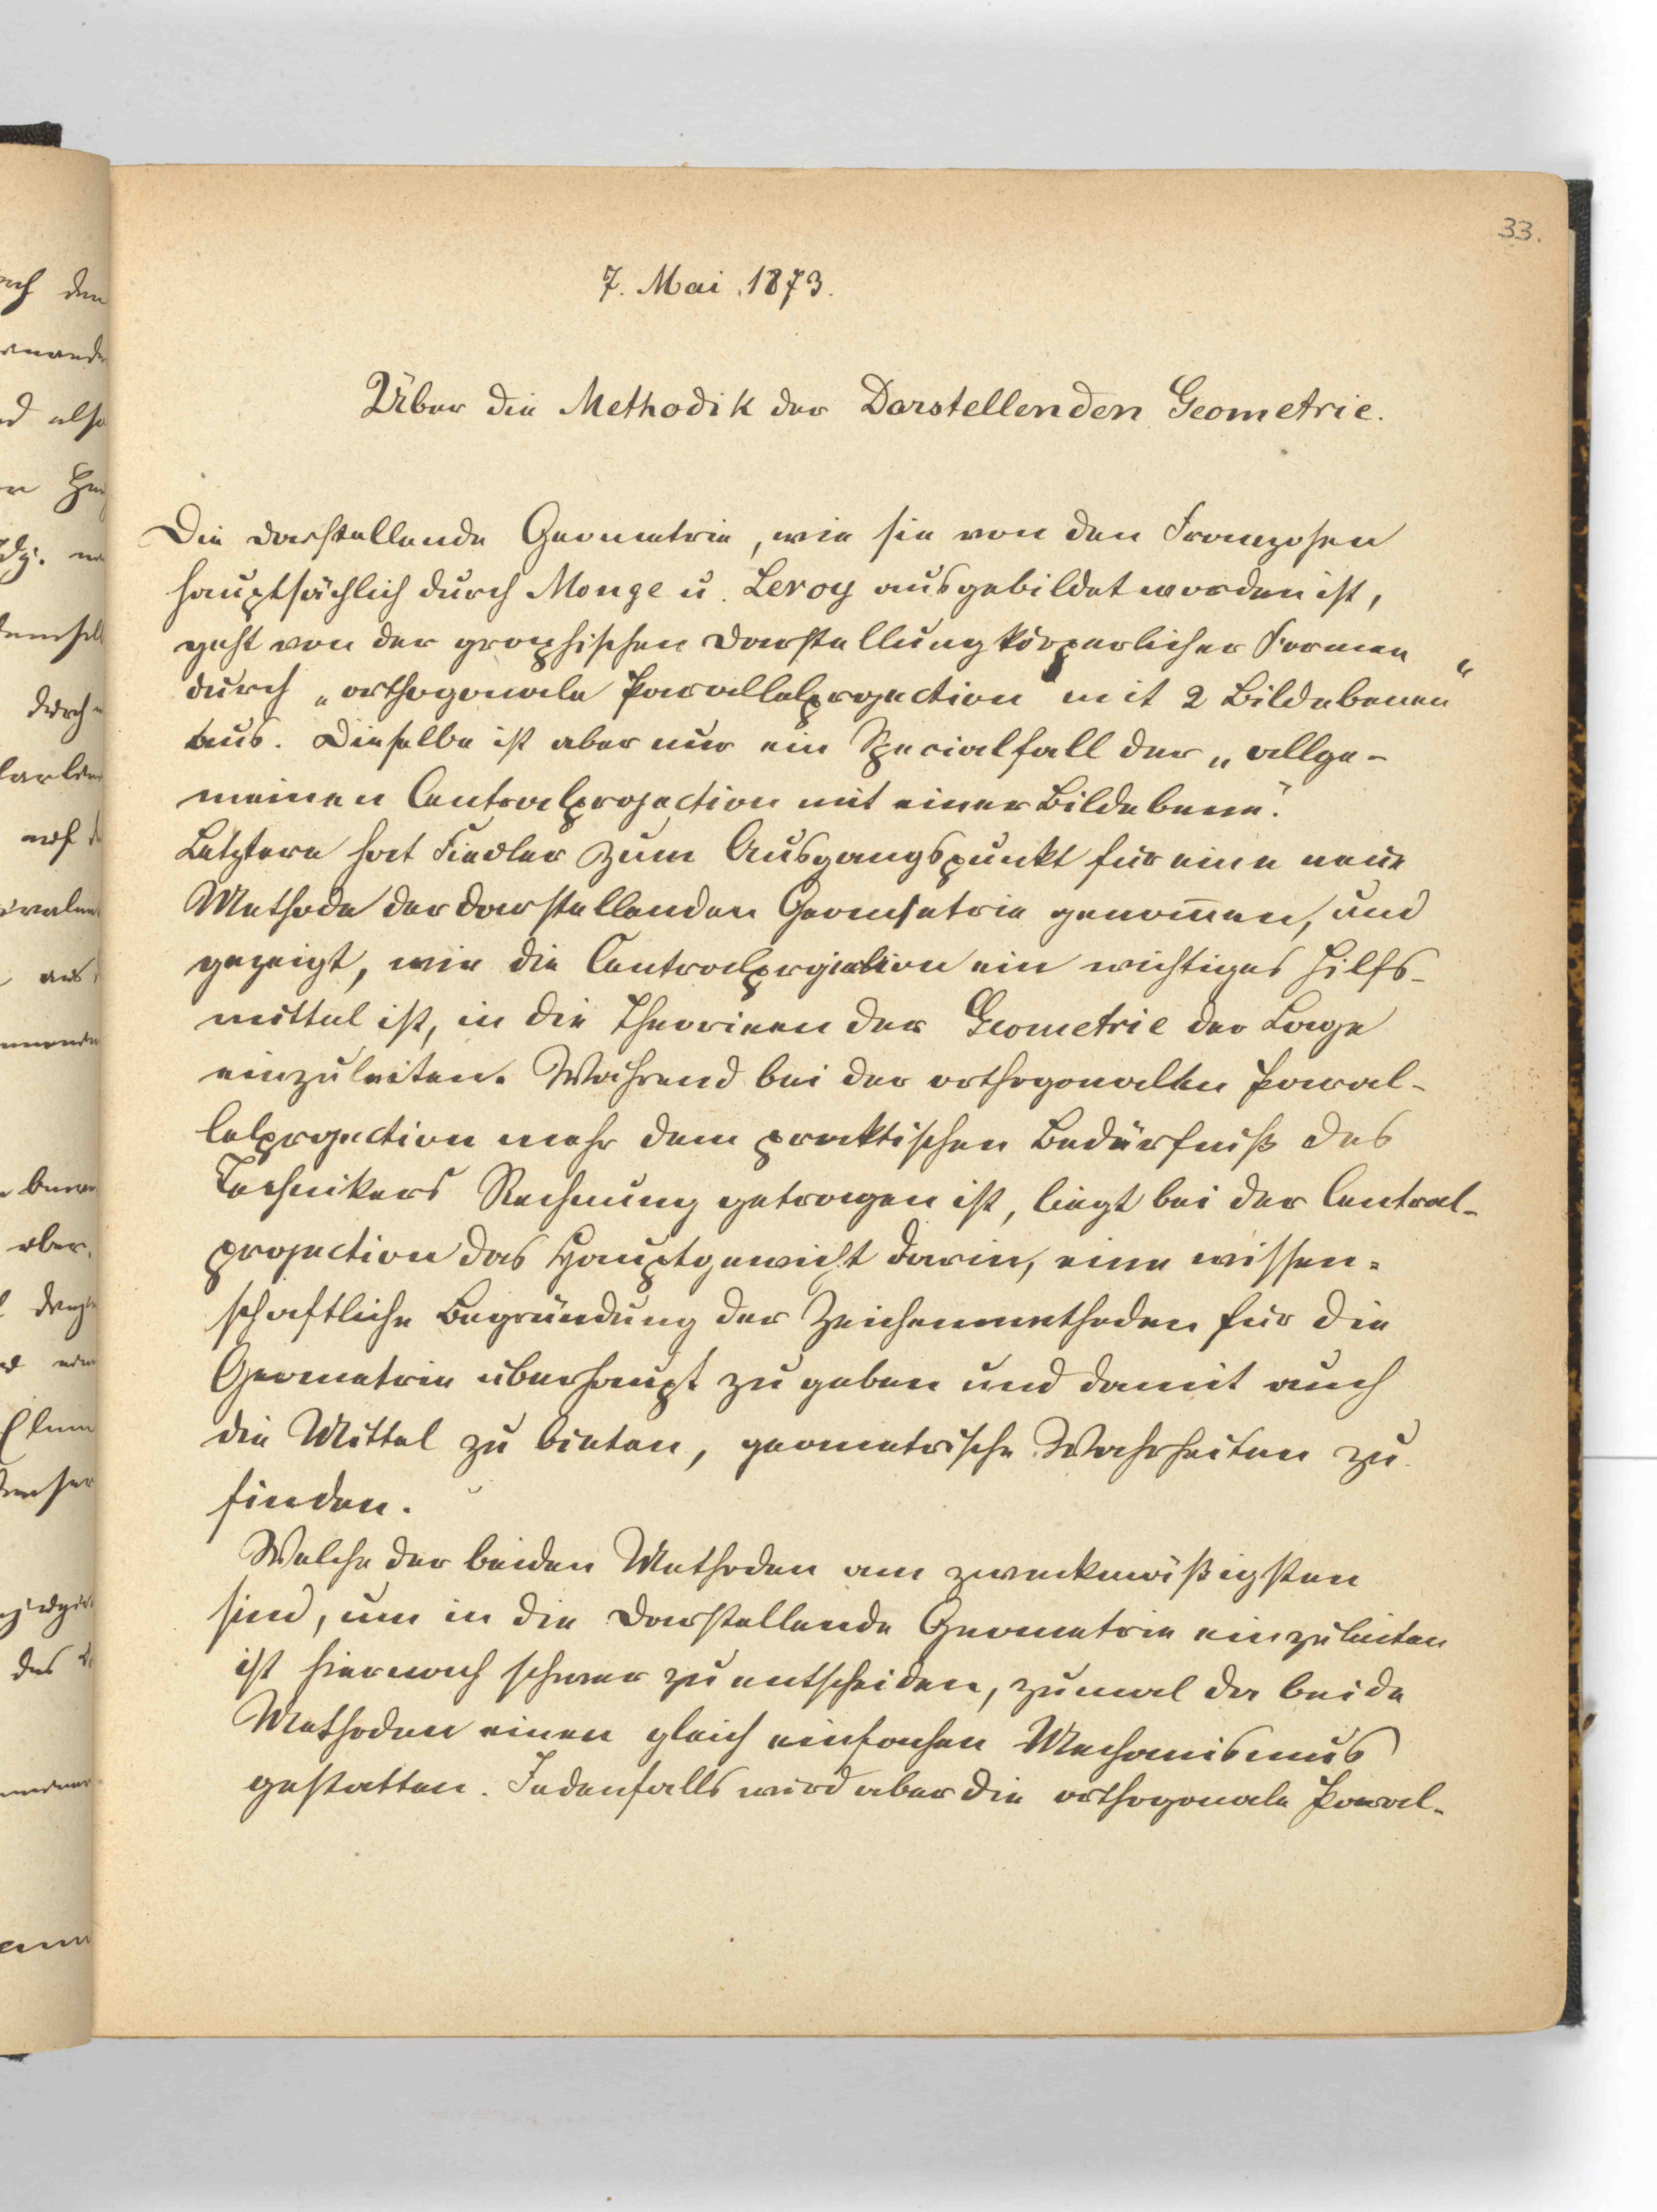 33.
7. Mai 1873.
Über die Methodik der Darstellenden Geometrie.
Die darstellende Geometrie, wie sie von den Franzosen
hauptsächlich durch Monge u. Leroy ausgebildet worden ist,
geht von der graphischen Darstellung körperlicher Formen
durch „orthogonale Parallelprojection mit 2 Bildebenen“
aus. Dieselbe ist aber nur ein Specialfall der „allge-
meinen Centralprojection mit einer Bildebene“.
Letztere hat Fiedler zum Ausgangspunkt für eine neue
Methode der darstellenden Geometrie genom̄en, und
gezeigt, wie die Centralprojection ein wichtiges Hilfs-
mittel ist, in die Theorieen der Geometrie der Lage
einzuleiten. Während bei der orthogonalen Paral-
lelprojection mehr dem praktischen Bedürfniß des
Technikers Rechnung getragen ist, liegt bei der Central-
projection das Hauptgewicht darin, eine wissen-
schaftliche Begründung der Zeichenmethoden für die
Geometrie überhaupt zu geben und damit auch
die Mittel zu bieten, geometrische Wahrheiten zu
finden.
Welche der beiden Methoden am zweckmäßigsten
sind, um in die darstellende Geometrie einzuleiten
ist hiernach schwer zu entscheiden, zumal da beide
Methoden einen gleich einfachen Mechanismus
gestatten. Jedenfalls wird aber die orthogonale Paral-